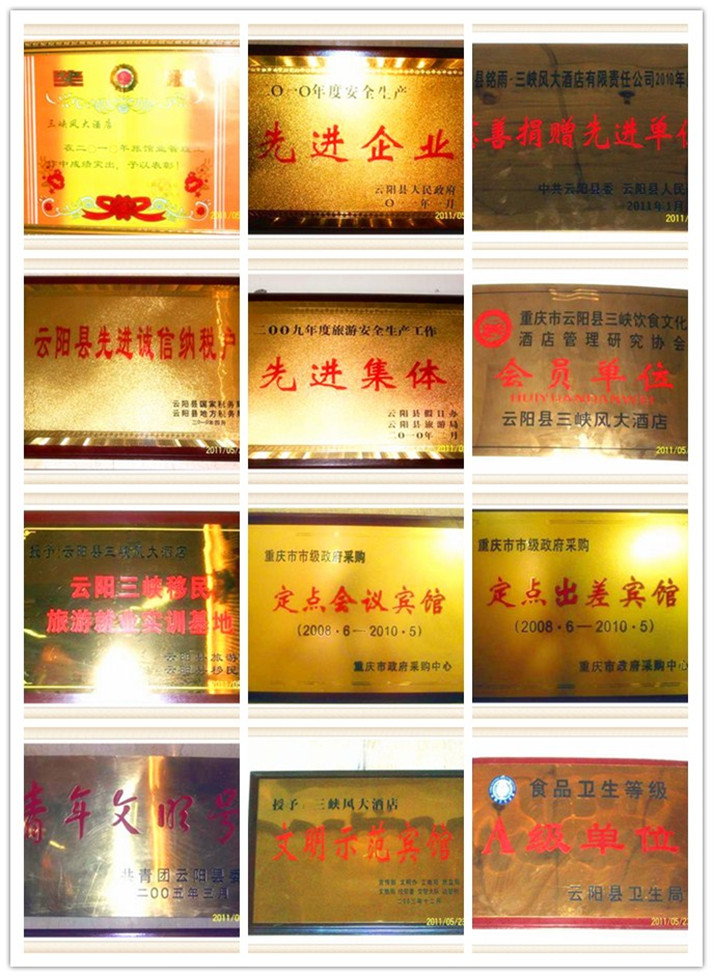 三峡风大酒店
在二〇一〇年旅馆业管理工
作中成绩突出，予以表彰！
2011/05
二〇一〇年度安全生产
先进企业
云阳县人民政府
二〇一一年一月
2011/05
县铭雨·三峡风大酒店有限责任公司2010年
慈善捐赠先进单位
中共云阳县委 云阳县人民
2011年1月
2011/
云阳县先进诚信纳税户
云阳县国家税务
云阳县地方税务
二〇一〇年四月
2011/05/
二〇〇九年度旅游安全生产工作
先进集体
云阳县假日办
云阳县旅游局
二〇一〇年二月
2011/05
重庆市云阳县三峡饮食文化
酒店管理研究协会
会员单位
HUIYUANDANWEI
云阳县三峡风大酒店
2011/05/
授予：云阳县三峡风大酒店
云阳三峡移民
旅游就业实训基地
云阳县旅游
云阳县移民
重庆市市级政府采购
定点会议宾馆
(2008·6—2010·5)
重庆市政府采购中心
重庆市市级政府采购
定点出差宾馆
(2008·6—2010·5)
重庆市政府采购中心
青年文明号
共青团云阳县委
二〇〇五年三月
2011/0
授予：三峡风大酒店
文明示范宾馆
2011/05/23
食品卫生等级
A级单位
云阳县卫生局
2011/05/2